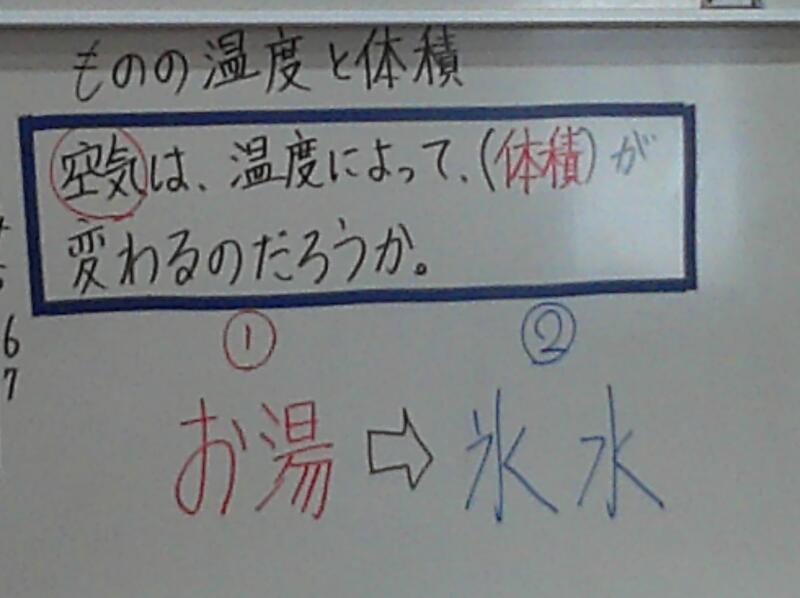 ものの温度と体積
空気は、温度によって、(体積)が
変わるのだろうか。
① ②
お湯⇨氷水
6
7